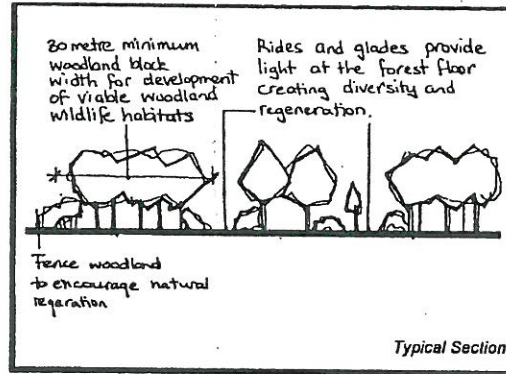 30 metre minimum
woodland block
width for development
of viable woodland
wildlife habitats
Rides and glades provide
light at the forest floor
creating diversity and
regeneration.
Fence woodland
to encourage natural
regaration
Typical Section